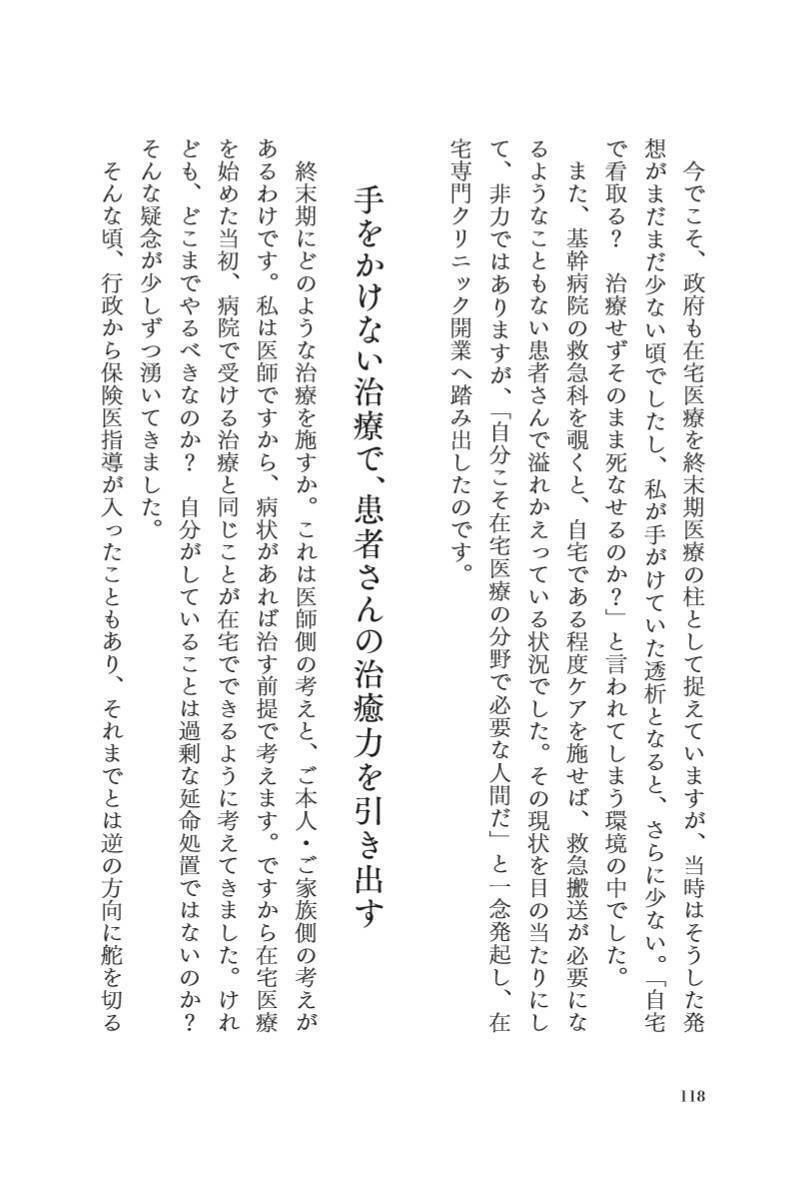 今でこそ、政府も在宅医療を終末期医療の柱として捉えていますが、当時はそうした発
想がまだまだ少ない頃でしたし、私が手がけていた透析となると、さらに少ない。「自宅
で看取る？　治療せずそのまま死なせるのか？」と言われてしまう環境の中でした。
　また、基幹病院の救急科を覗くと、自宅である程度ケアを施せば、救急搬送が必要にな
るようなこともない患者さんで溢れかえっている状況でした。その現状を目の当たりにし
て、非力ではありますが、「自分こそ在宅医療の分野で必要な人間だ」と一念発起し、在
宅専門クリニック開業へ踏み出したのです。
手をかけない治療で、患者さんの治癒力を引き出す
　終末期にどのような治療を施すか。これは医師側の考えと、ご本人・ご家族側の考えが
あるわけです。私は医師ですから、病状があれば治す前提で考えます。ですから在宅医療
を始めた当初、病院で受ける治療と同じことが在宅でできるように考えてきました。けれ
ども、どこまでやるべきなのか？　自分がしていることは過剰な延命処置ではないのか？
そんな疑念が少しずつ湧いてきました。
　そんな頃、行政から保険医指導が入ったこともあり、それまでとは逆の方向に舵を切る
118